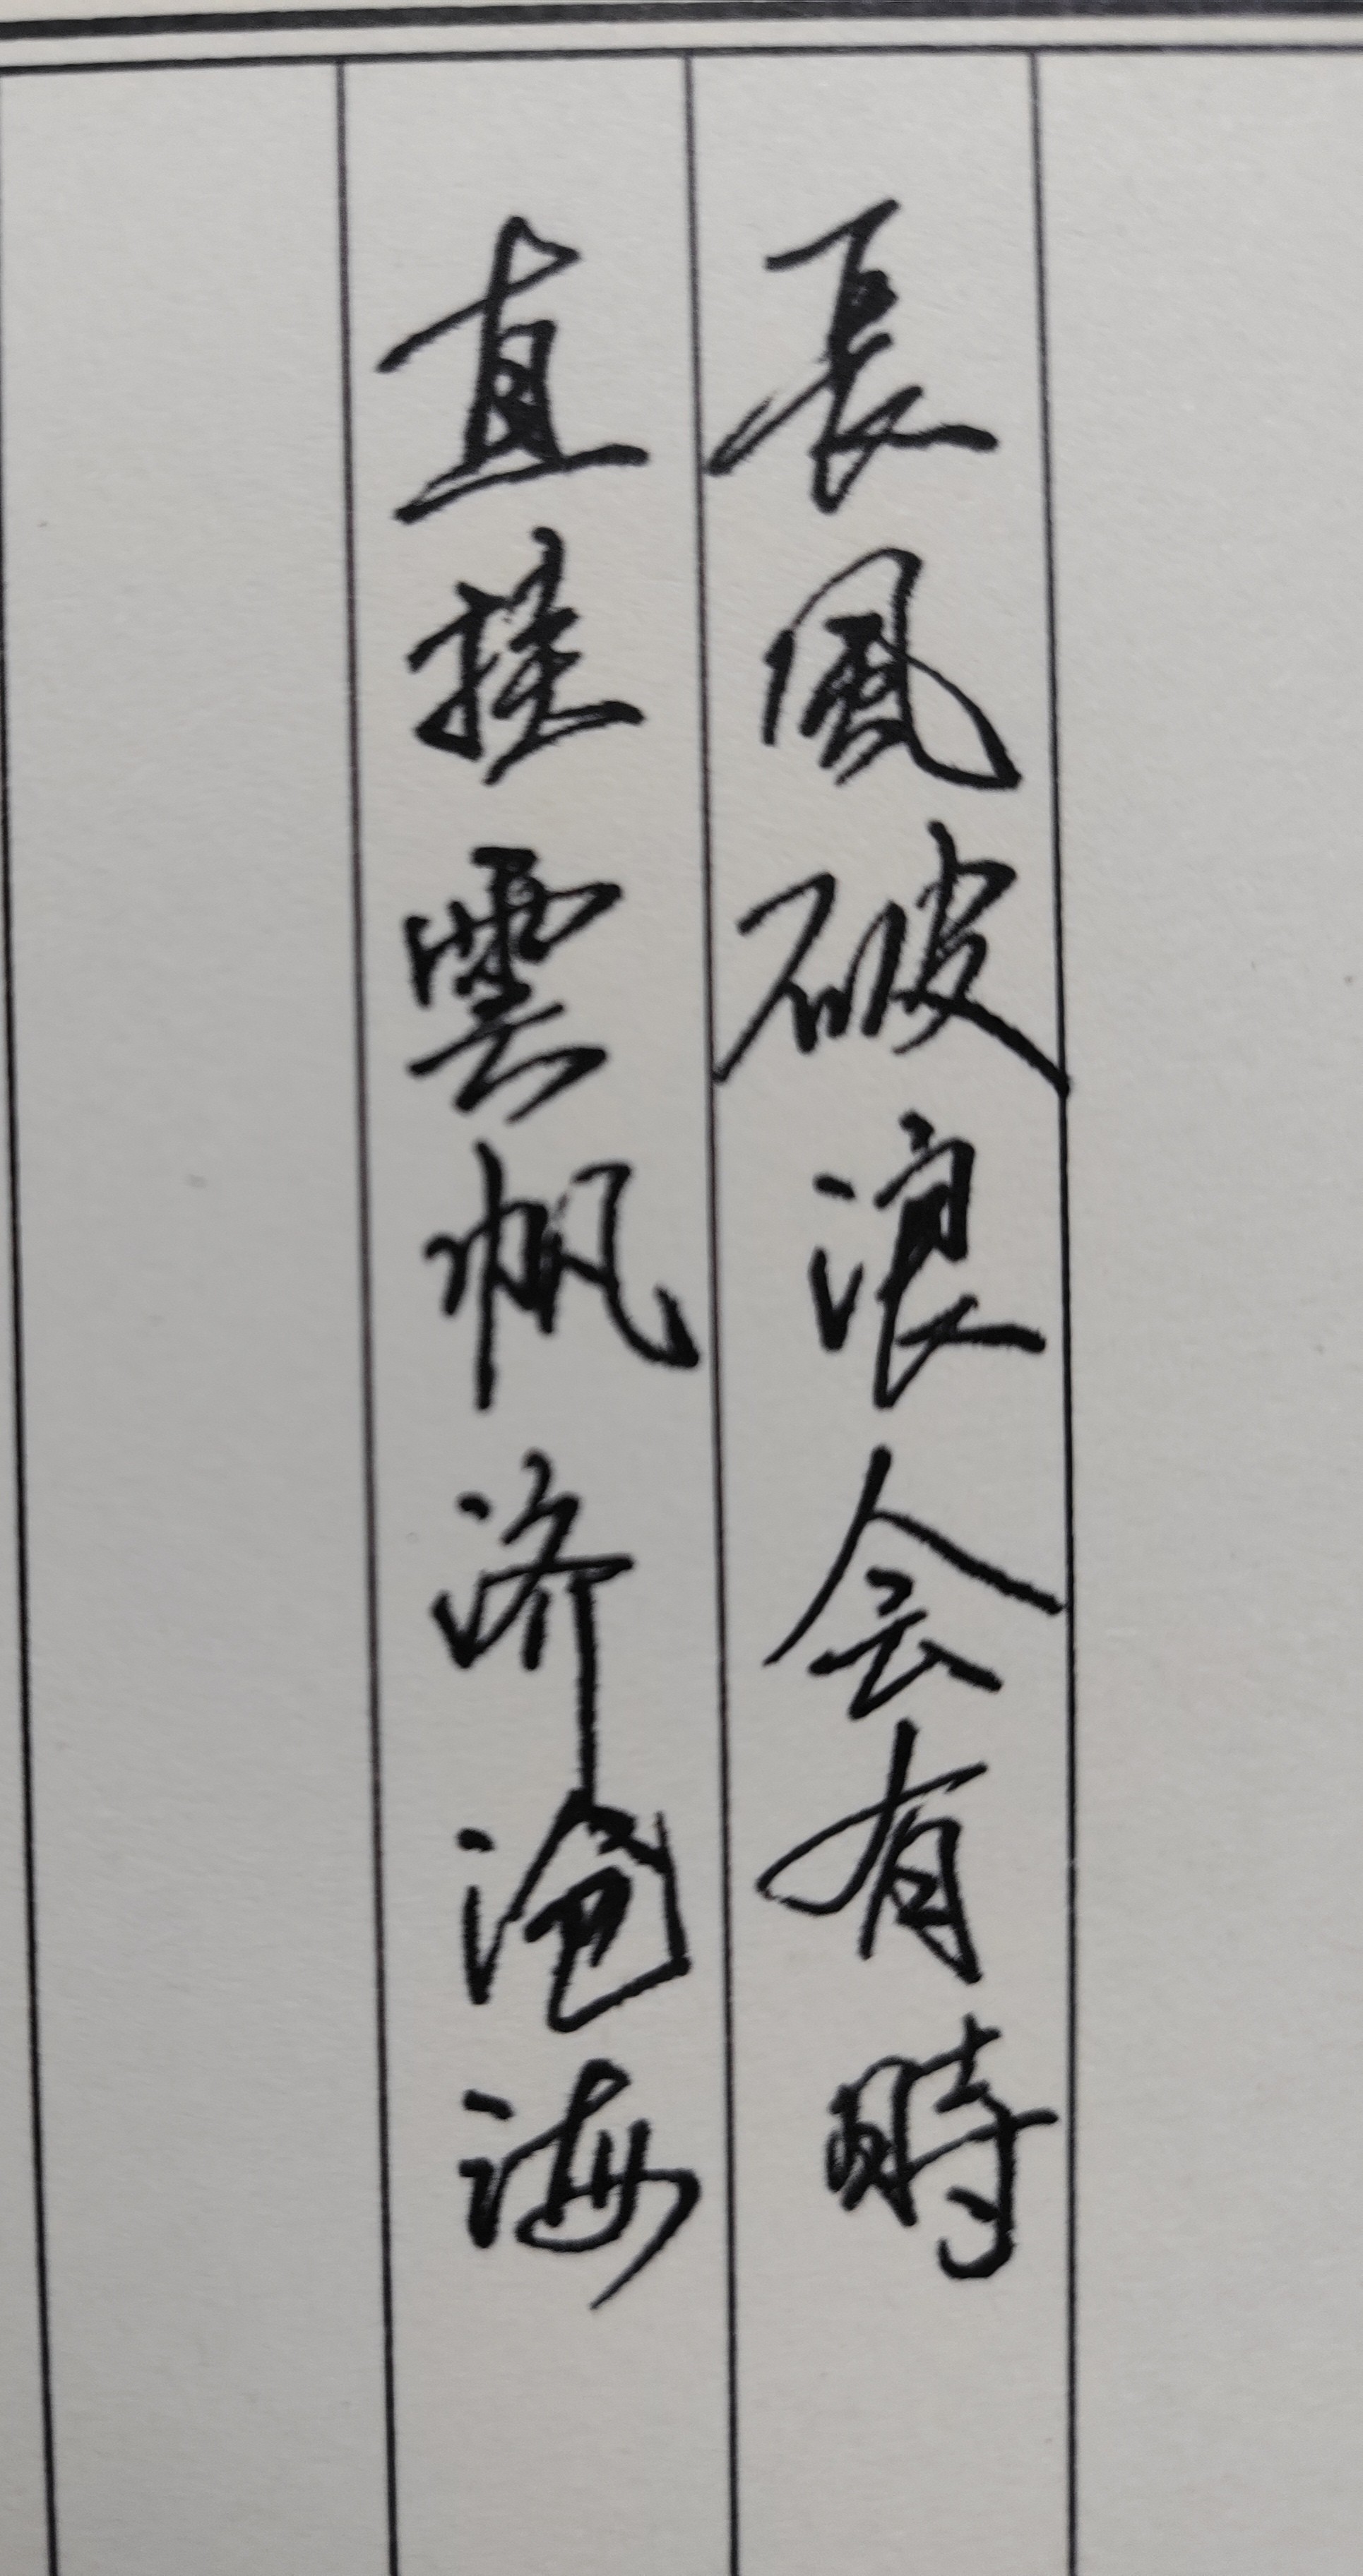 長風破浪会有時
直挂雲帆济滄海